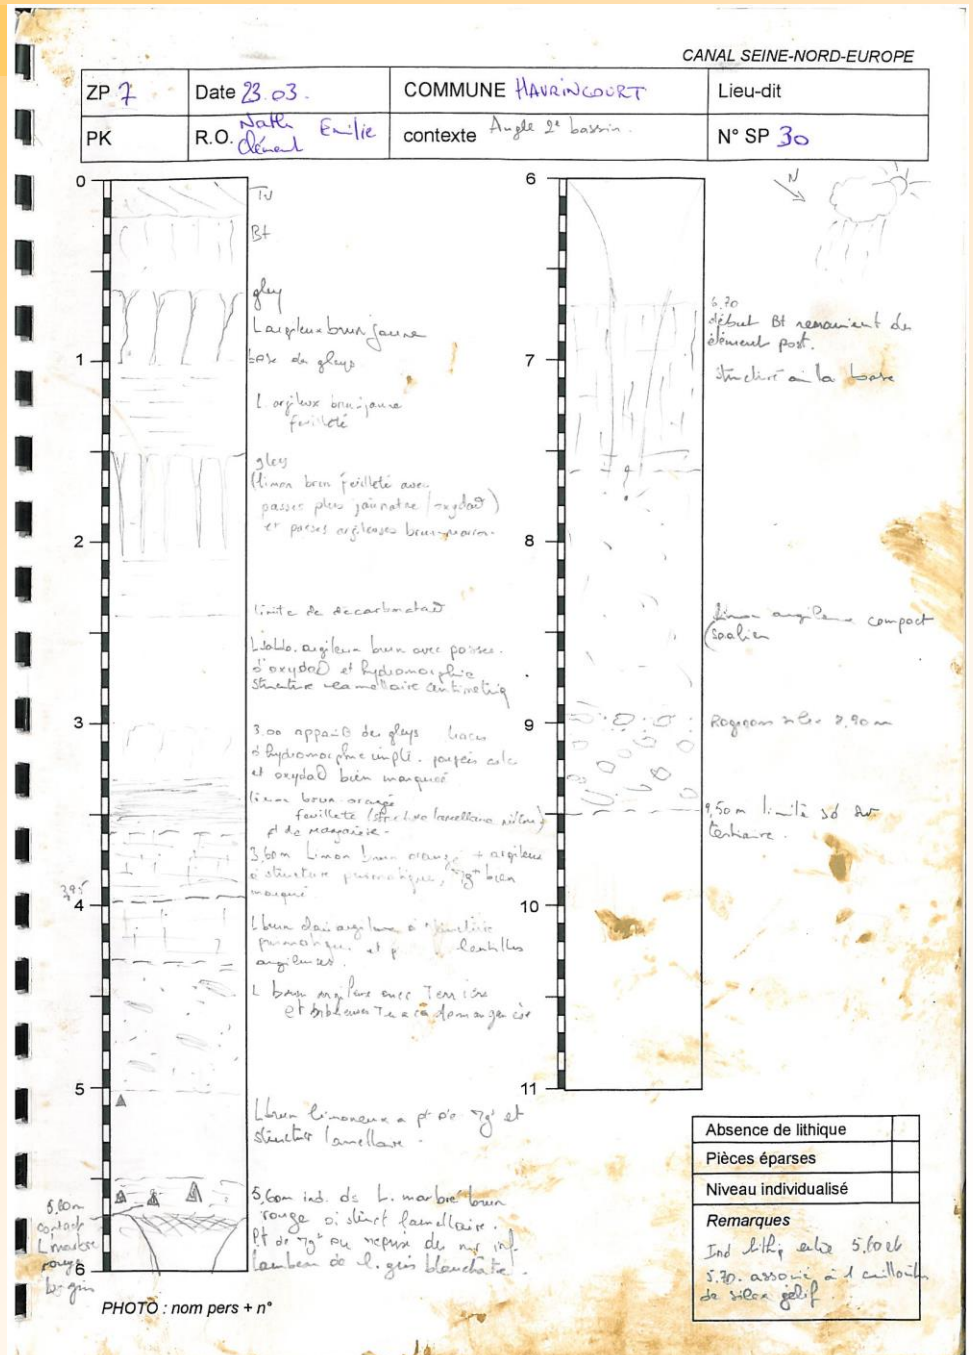 CANAL SEINE-NORD-EUROPE
ZP 7
Date 23.03.
COMMUNE HAVRINCOURT
Lieu-dit
PK
R.O. Nath Emilie
Clément
contexte Angle 2e bassin.
N° SP 30
0
1
2
3
4
5
6
Bt
gley
L argileux brun jaune
base de gleys
L. argileux brun-jaune
feuilleté
gley
(limon brun feuilleté avec
passes plus jaunatre / oxydaø)
et passes argileuses brun-marron.
limite de décarbonataø
argileux brun avec passes.
d'oxydaø et hydromorphie
structure lamellaire centimétriq
3.00 appariø des gleys traces
d'hydromorphie
et oxydaø bien marquée
limon brun orangé
feuilleté (structure lamellaire
pt de manganèse -
3,60m Limon brun orangé + argileux
à structure prismatique, bien
marqué
3.95
L brun clair argileux à structure
prismatique. et lentilles
argileuses.
L brun argileux avec
et
L brun limoneux a pt de et
structure lamellaire.
5,60m ind. de L. marbré brun
rouge à struct lamellaire.
Pt de ou reprise de inf.
lambeau de l. gris blanchâtre.
5,60m
contact
L marbré
rouge
L. gris
PHOTO : nom pers + n°
6
7
8
9
10
11
N
6,70
début Bt remaniant des
élément post.
structuré à la base
?
Limon argileux compact
(saalien
Rognons silex 8,90 m
9,50m limite sd sur
tertiaire.
Absence de lithique
Pièces éparses
Niveau individualisé
Remarques
Ind lithiq entre 5,60 et
5.70. associé à 1 cailloutis
de silex gélif.